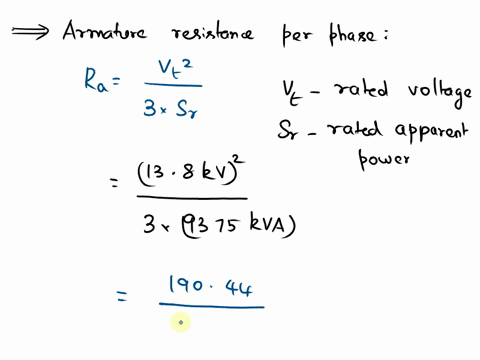 ⟹ Armature resistance per phase:
Ra = Vt² / 3 × Sr
Vt - rated voltage
Sr - rated apparent
power
= (13.8 kV)² / 3 × (9375 kVA)
= 190.44